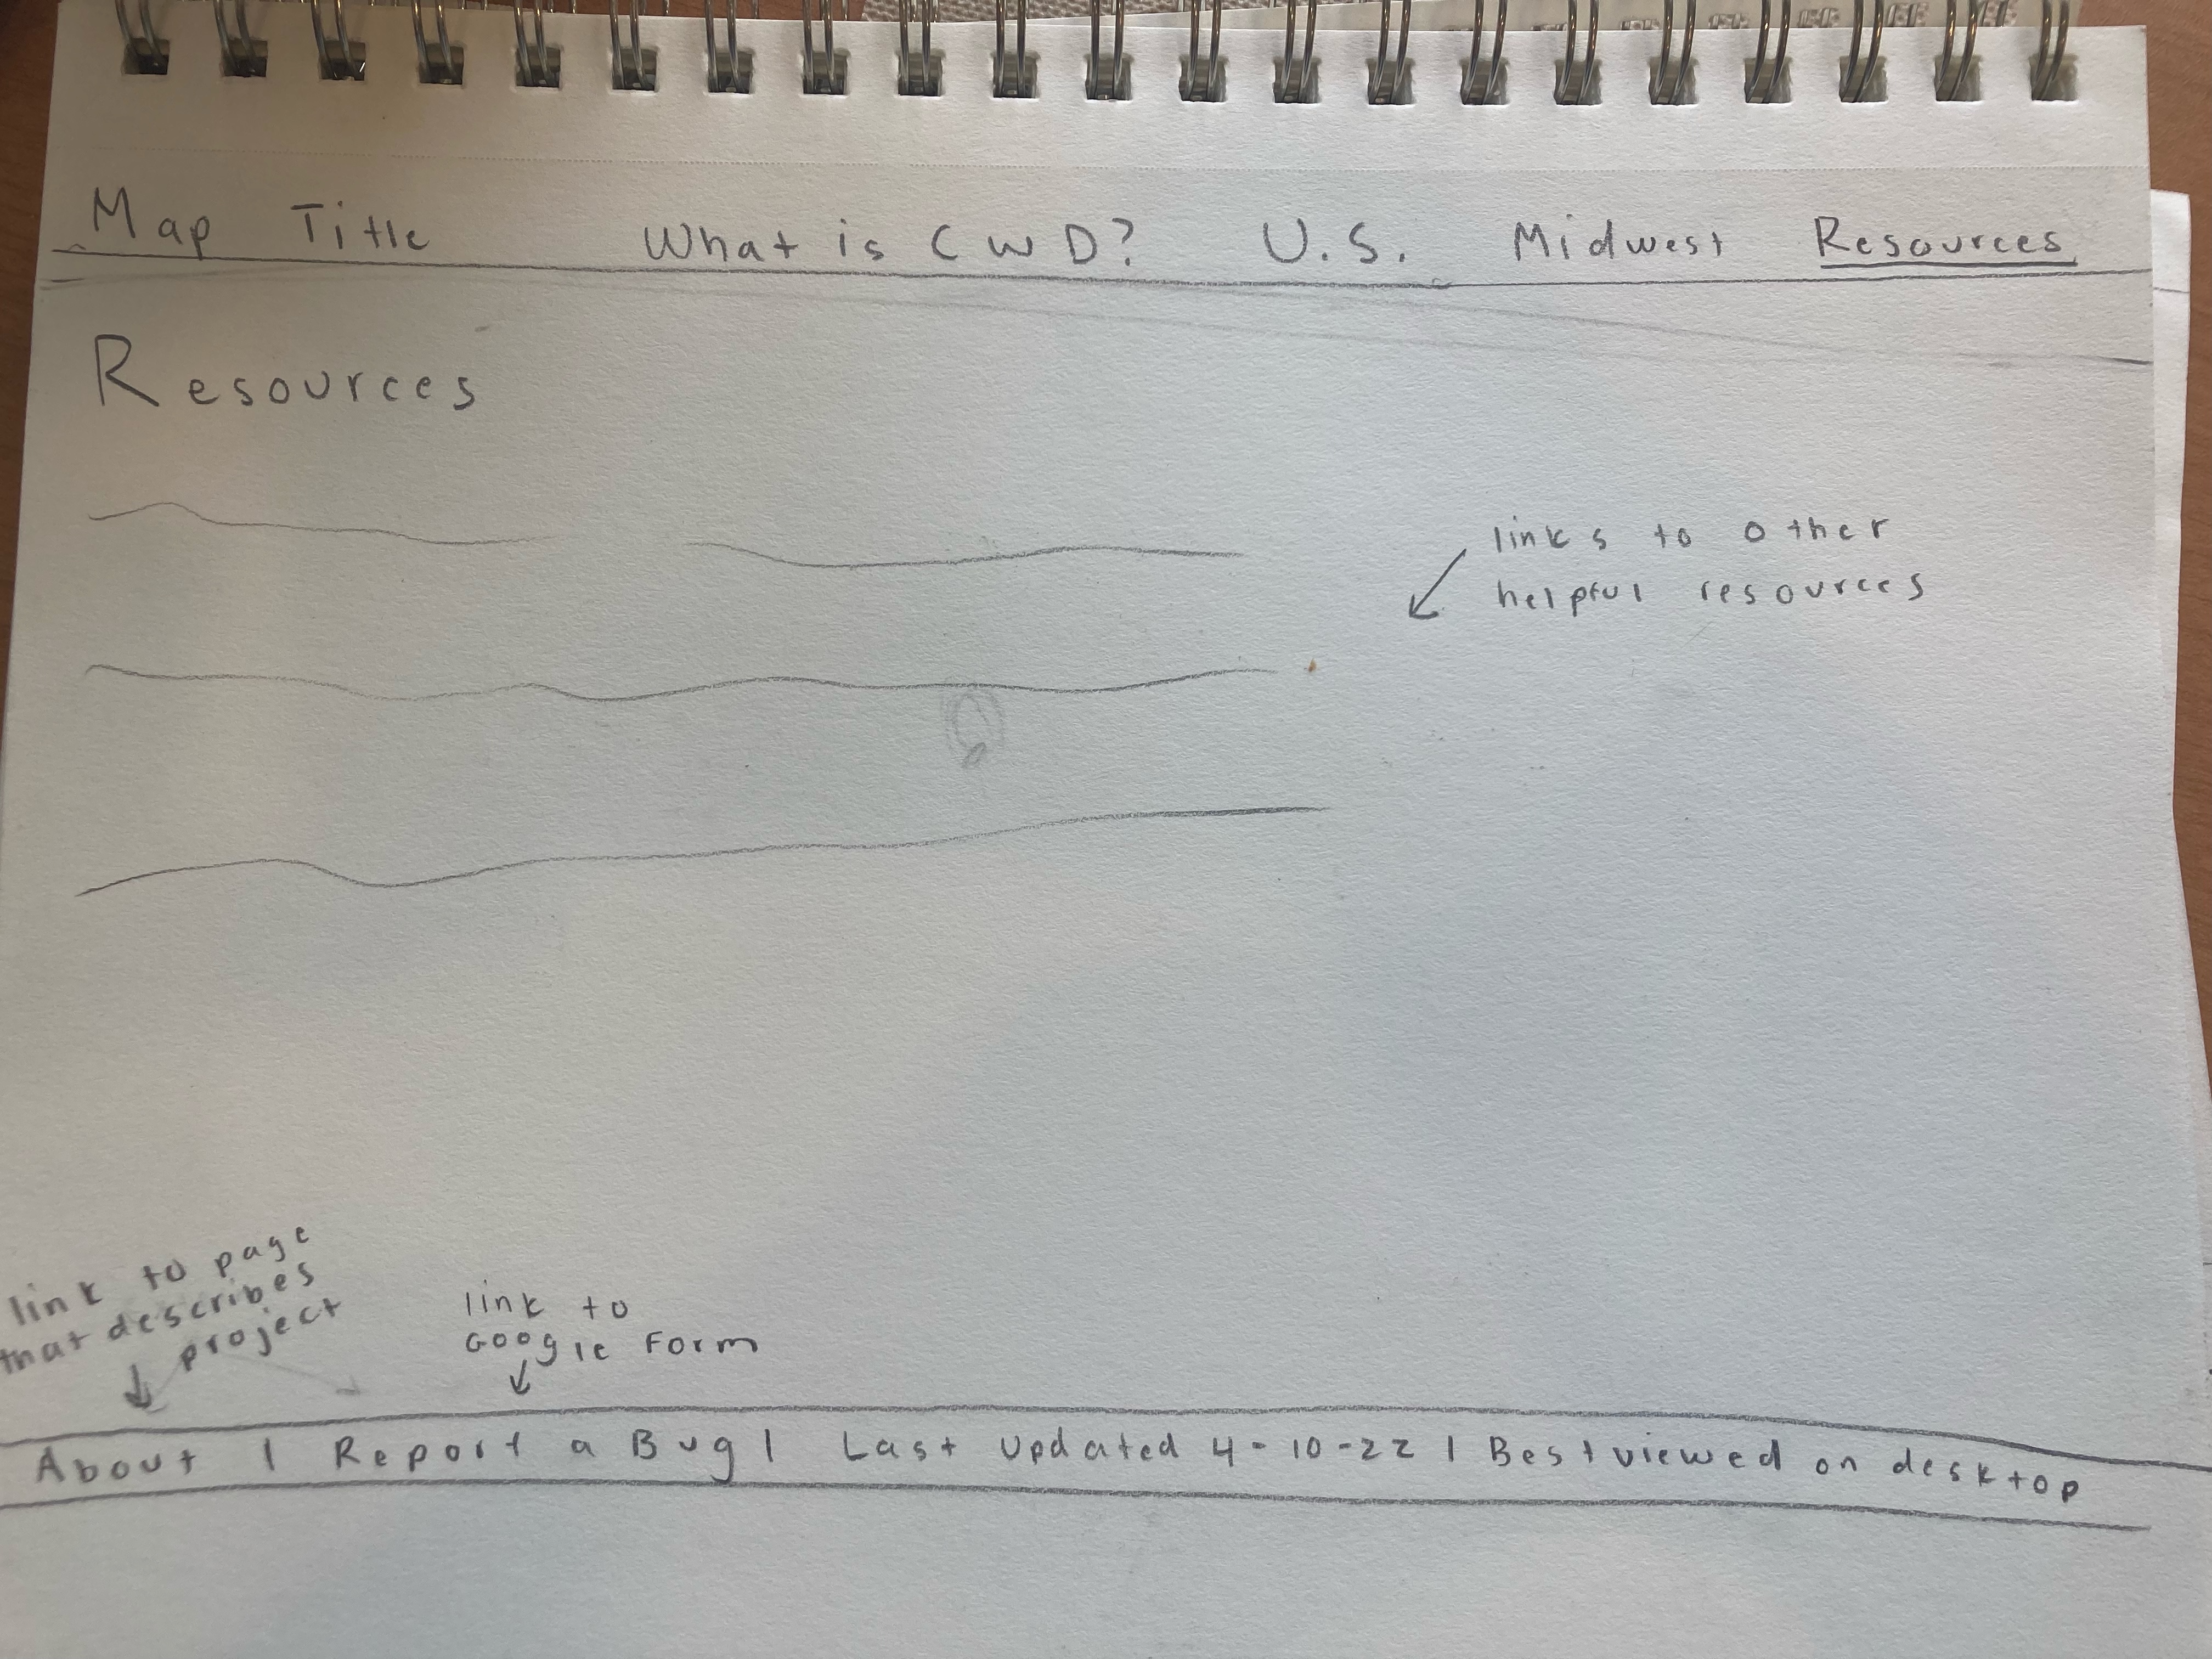 Map Title What is CWD? U.S. Midwest Resources
Resources
links to other
helpful resources
link to page
that describes
project
link to
Google Form
About | Report a Bug | Last Updated 4-10-22 | Best viewed on desktop